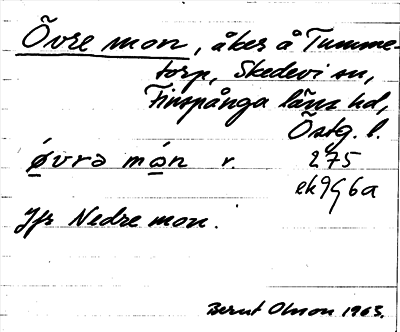 Övre mon, åker å Tumme-
torp, Skedevi sn,
Finspånga läns hd,
Östg. l.
ǿvrə món r. 275
ek9G6a
Jfr Nedre mon.
Bernt Olsson 1963.